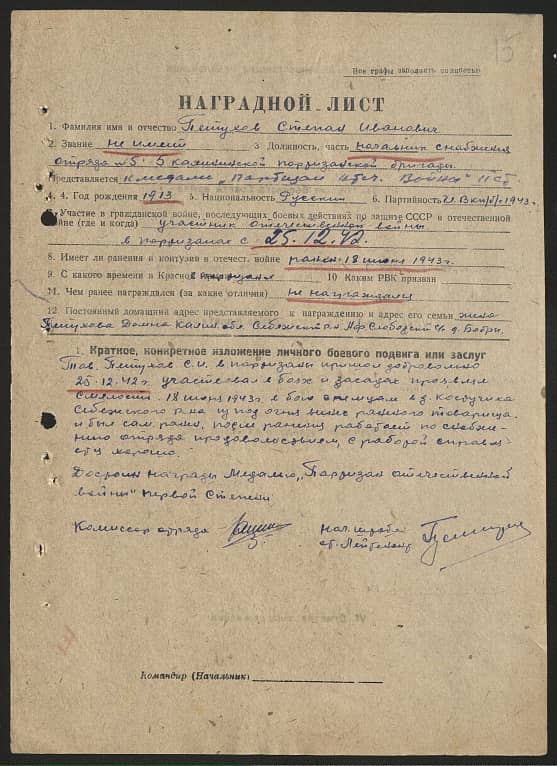 15
Все графы заполнять полностью
НАГРАДНОЙ ЛИСТ
1. Фамилия имя и отчество Петухов Степан Иванович
2. Звание не имеет 3 Должность, часть начальник снабжения
отряда №5 5 калининской партизанской бригады.
Представляется к медали „Партизан Отеч. Войны" II ст
4. Год рождения 1913 5. Национальность Русский 6. Партийность чл. ВКП(б) 1943г.
Участие в гражданской войне, последующих боевых действиях по защите СССР и отечественной
войне (где и когда) участник отечественной войны
в партизанах с 25.12.42.
8. Имеет ли ранения и контузии в отечест. войне ранен 18 июня 1943г.
9. С какого времени в Красной партизан 10 Каким РВК призван
11. Чем ранее награждался (за какие отличия) не награждался
12. Постоянный домашний адрес представляемого к награждению и адрес его семьи жена
Петухова Домна Калин. обл. Себежский р-н д. Бобры.
1. Краткое, конкретное изложение личного боевого подвига или заслуг
Тов. Петухов С.И. в партизаны пришел добровольно
25.12.42г. участвовал в боях и засадах проявлял
смелость. 18 июня 1943г. в бою с немцам в д.
Себежского р-на из под огня вынес раненого товарища.
и был сам ранен, после ранения работает по снабже-
нию отряда продовольствием, с работой справля-
ется хорошо.
Достоин награды Медалью „Партизан отечественной
войны" первой степени
Комиссар отряда Нач. штаба
ст. Лейтенант
Командир (Начальник)